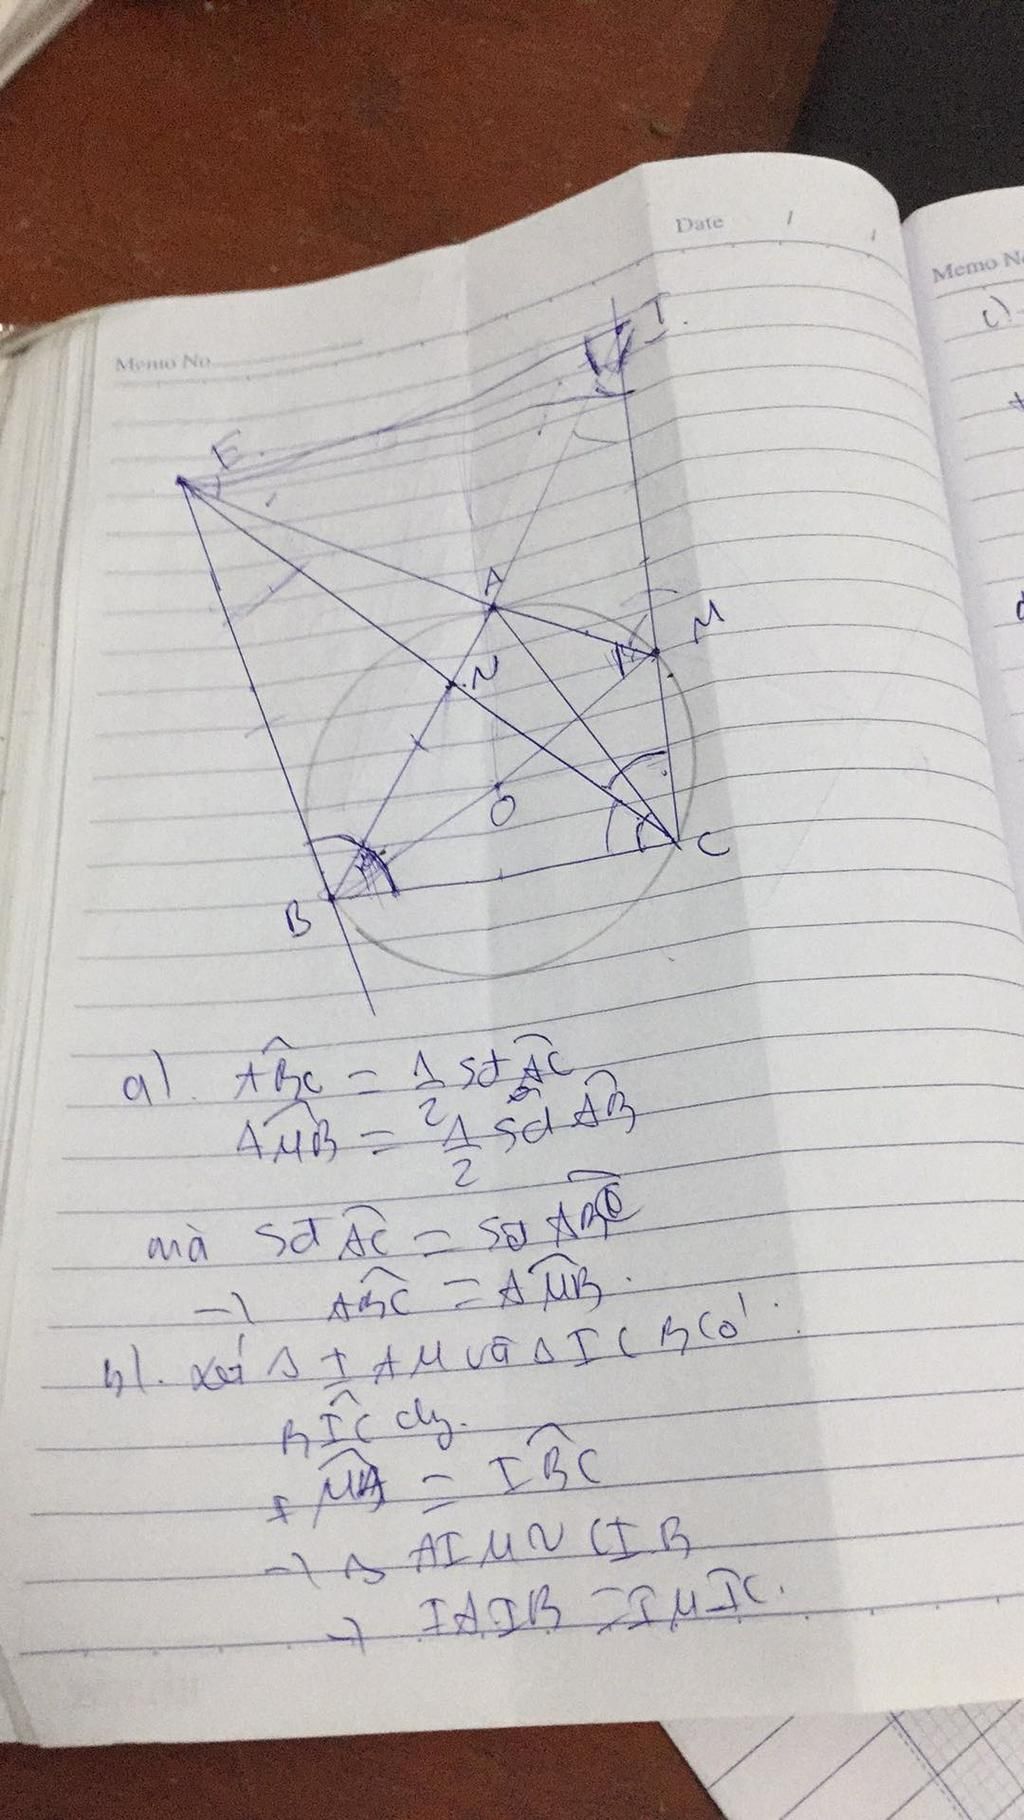 Date / /
Memo No
Memo No
c)
I.
E.
A
M
N
O
C
B
a). ABC = 1/2 sđ AC
AMB = 1/2 sđ AB
mà sđ AC = sđ AB
→ ABC = AMB.
b). xét Δ IAM và Δ ICB có
BIC chg.
IMA = IBC
→ Δ AIM ~ CIB
→ IA.IB = IM.IC.